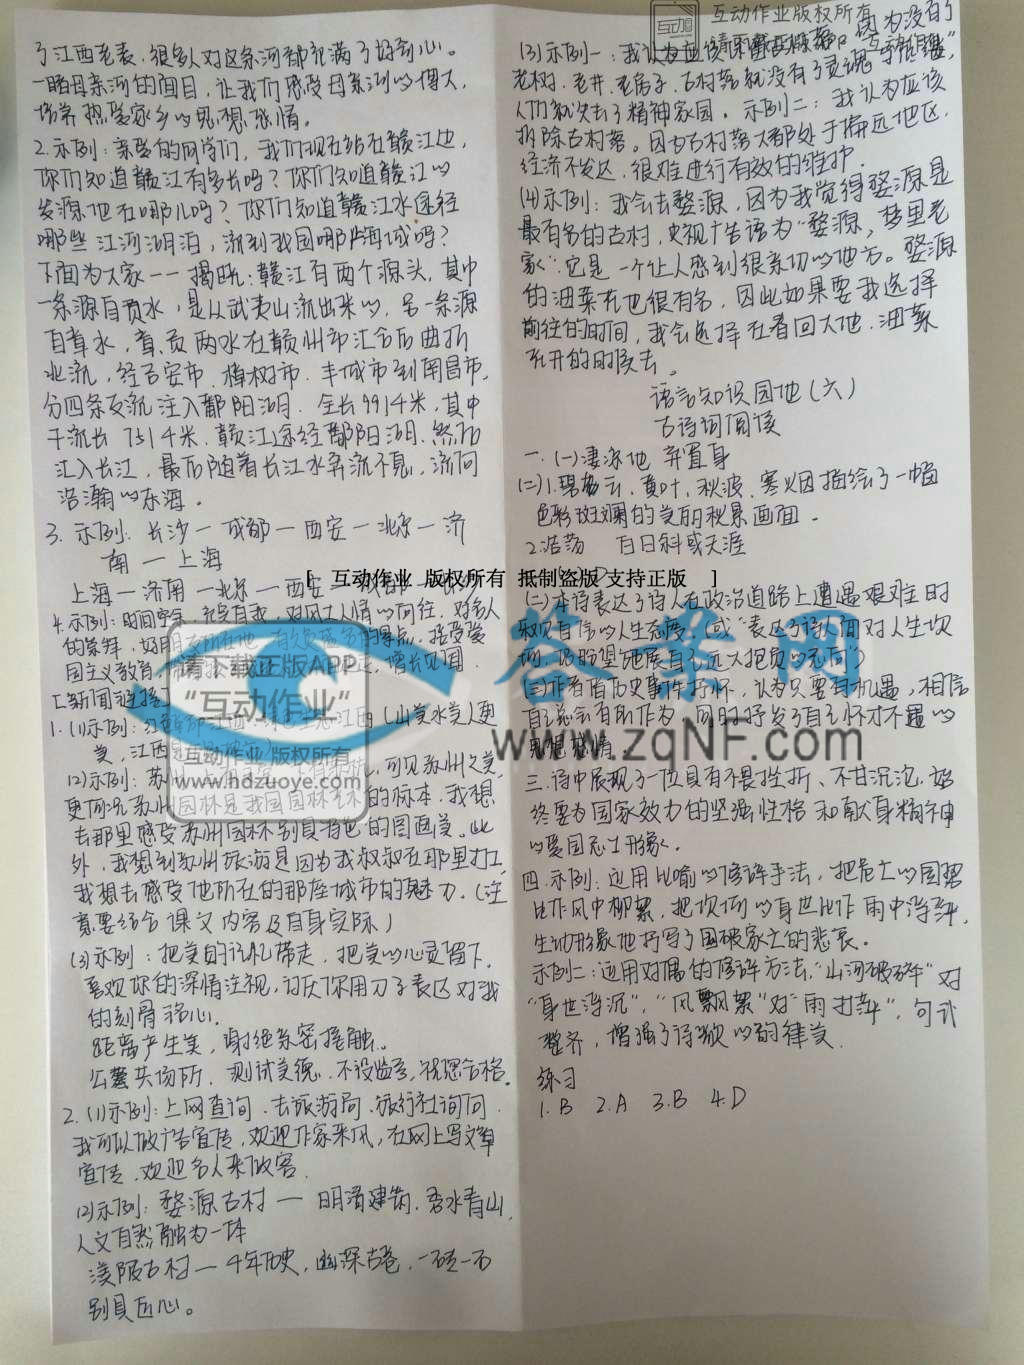 了江西老表，很多人对这条河都充满了好奇心。
一睹母亲河的面目，让我们感受母亲河的伟大，
培养热爱家乡的思想感情。
2.示例：亲爱的同学们，我们现在站在赣江边，
你们知道赣江有多长吗？你们知道赣江的
发源地在哪儿吗？你们知道赣江水途径
哪些江河湖泊，流到我国哪片海域吗？
下面为大家一一揭晓：赣江有两个源头，其中
一条源自贡水，是从武夷山流出来的，另一条源
自章水，章、贡两水在赣州市汇合后曲折
北流，经吉安市、樟树市、丰城市到南昌市，
分四条支流注入鄱阳湖。全长9914米，其中
干流长7514米，赣江途经鄱阳湖，然后
汇入长江，最后随着长江水奔流不息，流向
浩瀚的东海。
3.示例：长沙一成都一西安一北京一济
南一上海
上海一济南一北京一西安一
4.示例：时间宽余，充实自我，对风土人情的向往，对名人
的崇拜，
国主义教育，增长见闻
[新闻链接]
1.(1)示例：江西(山美水美人更
美，江西
(2)示例：苏，可见苏州之美，
更何况苏州园林是我国园林的标本，我想
去那里感受苏州园林别具特色的图画美。此
外，我想到苏州旅游是因为我叔叔在那里打工，
我想去感受他所在的那座城市的魅力。(注
意要结合课文内容及自身实际)
(3)示例：把美的记忆带走，把美的心灵留下。
喜欢你的深情注视，讨厌你用刀子表达对我
的刻骨铭心。
距离产生美，谢绝亲密接触。
公共场所，测试美德，不设监考，祝您合格。
2.(1)示例：上网查询、去旅游局、旅行社询问，
我可以做广告宣传，欢迎作家采风，在网上写文章
宣传，欢迎名人来做客。
(2)示例：婺源古村一明清建筑，秀水青山，
人文自然融为一体
渼陂古村一千年历史，幽深古巷，一砖一石
别具匠心。
(3)示例一：我认为应该，因为没有了
老树、老井、老房子，古村落就没有了灵魂，
人们就失去了精神家园。示例二：我认为应该
拆除古村落。因为古村落大都处于偏远地区，
经济不发达，很难进行有效的维护。
(4)示例：我会去婺源，因为我觉得婺源是
最有名的古村，央视广告语为“婺源，梦里老
家”。它是一个让人感到很亲切的地方。婺源
的油菜花也很有名，因此如果要我选择
前往的时间，我会选择在春回大地、油菜
花开的时候去。
语言知识园地(六)
古诗词阅读
一.(一)凄凉地 弃置身
(二)1.碧云、黄叶、秋波、寒烟描绘了一幅
色彩斑斓的美丽秋景画面。
2.浩荡 白日斜 或天涯
[ 互动作业 版权所有 抵制盗版 支持正版 ]
(二)本诗表达了诗人在政治道路上遭遇艰难时
乐观自信的人生态度。(或“表达了诗人面对人生坎
坷，仍盼望施展自己远大抱负的志向”)
(三)作者借历史事件抒怀，认为只要有机遇，相信
自己总会有所作为，同时抒发了自己怀才不遇的
思想感情。
三.诗中展现了一位具有不畏挫折、不甘沉沦、始
终要为国家效力的坚强性格和献身精神
的爱国志士形象。
四.示例：运用比喻的修辞手法，把危亡的国势
比作风中柳絮，把坎坷的身世比作雨中浮萍，
生动形象地抒写了国破家亡的悲哀。
示例二：运用对偶的修辞方法，“山河破碎”对
“身世浮沉”，“风飘絮”对“雨打萍”，句式
整齐，增强了诗歌的韵律美。
练习
1.B 2.A 3.B 4.D
互动作业版权所有
请下载正版APP
“互动作业”
互动作业 版权所有
www.hdzuoye.com
答案网
www.zqNF.com